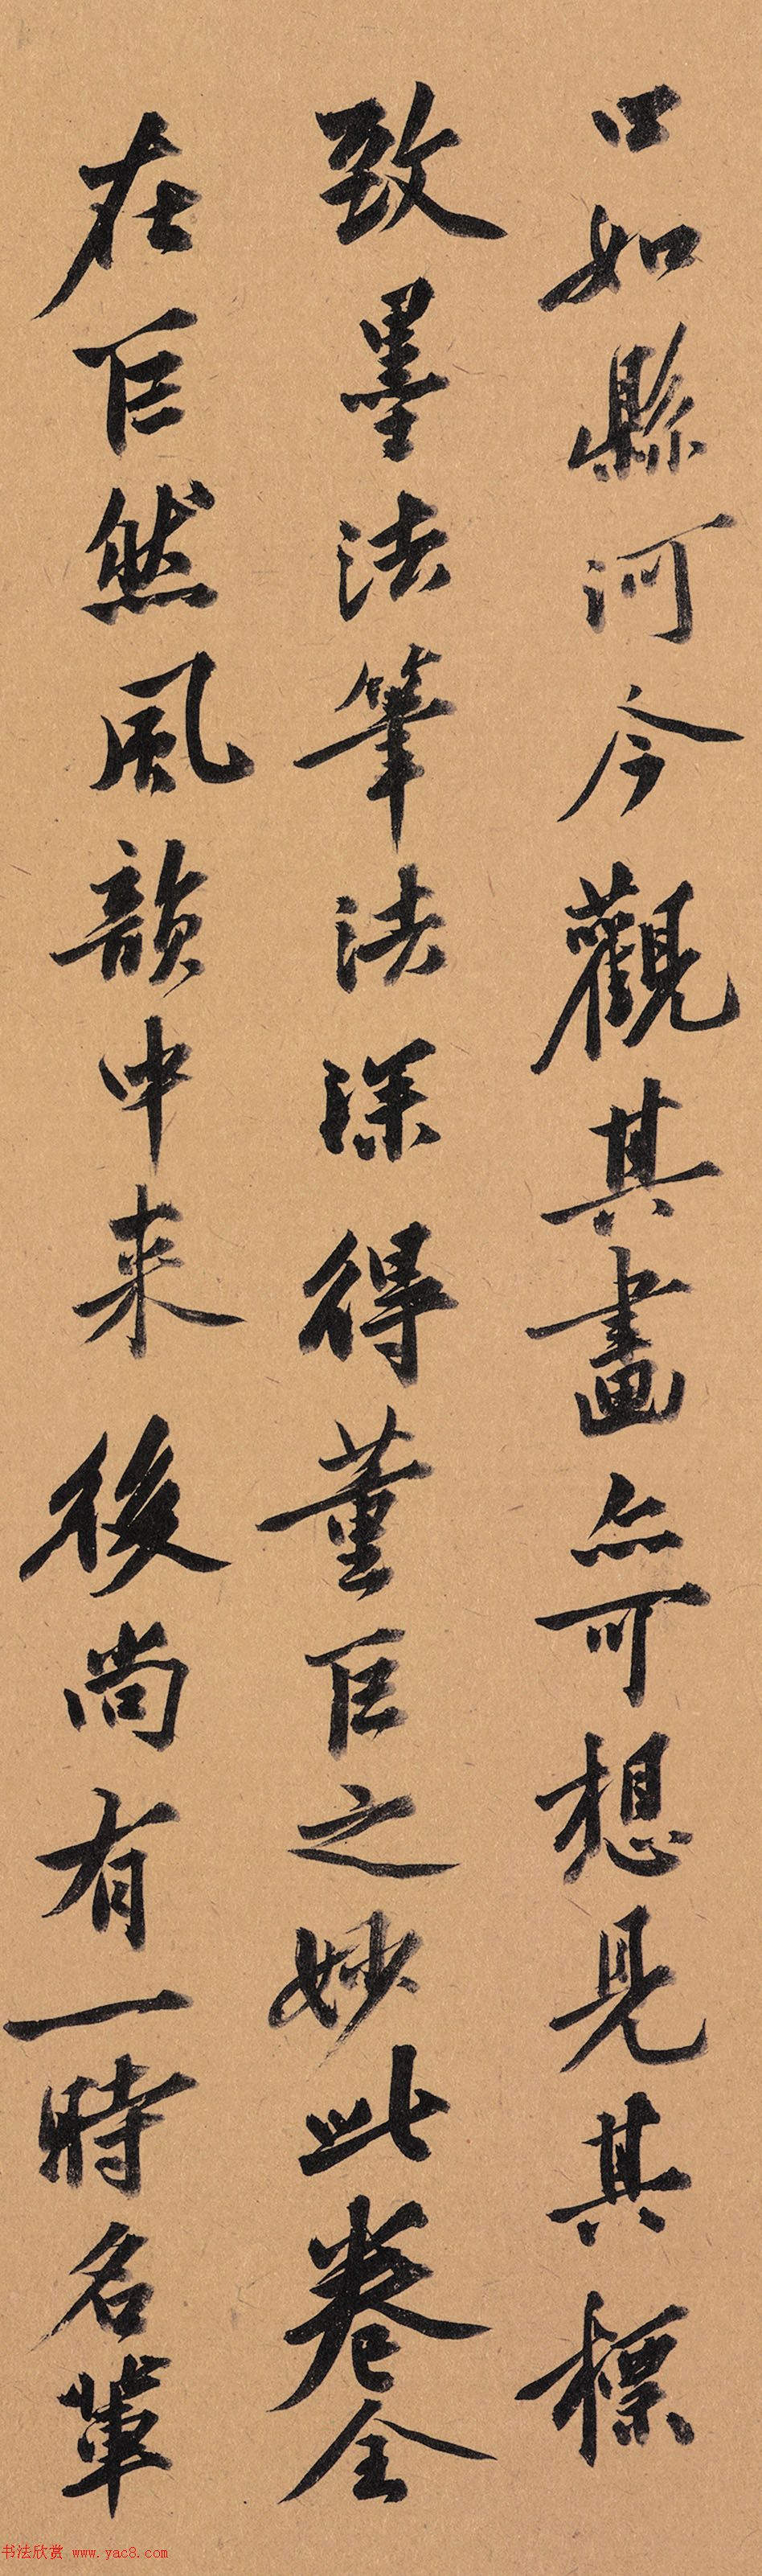 口如縣河今觀其畫亦可想見其標
致墨法筆法深得董巨之妙此卷全
在巨然風韻中来後尚有一時名軰
书法欣赏 www.yac8.com